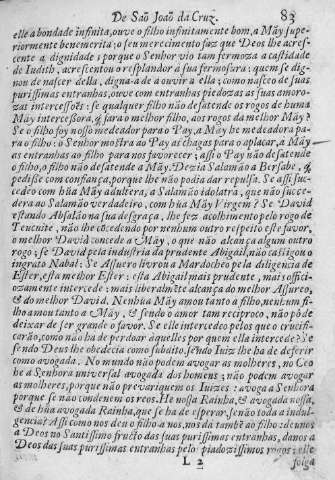 De Saõ Joaõ da Cruz. 83
elle a bondade infinita, ouve o filho infinitamente bom, a Mãy supe-
riormente benemerita; o seu merecimento faz que Deos lhe acres-
cente a dignidade: porque o Senhor vio tam fermoza a castidade
de Iudith, acrescentou o resplandor à sua fermosura: quem se dig-
nou de nascer della, digna-a de a ouvir a ella: como nasceo de suas
purissimas entranhas, ouve com entranhas piedozas as suas amoro-
zas intercessoẽs: se qualquer filho não desatende os rogos de huma
Mãy intercessora, q̃ fara o melhor filho, aos rogos da melhor Mãy?
Se o filho foy nosso medeador para o Pay, a Mãy he medeadora pa-
ra o filho: o Senhor mostra ao Pay as chagas para o aplacar, a Mãy
as entranhas ao filho para nos favorecer; assi o Pay não desatende
o filho, o filho não desatende a Mãy. Dezia Salamão a Bersabe, q̃
pedisse com confiança, porque lhe não podia dar repulsa. Se assi suc-
cedeo com hũa Mãy adultera, a Salamão idolatra, que não succe-
dera ao Salamão verdadeiro, com hũa Mãy Virgem? Se David
estando Absalão na sua desgraça, lhe fez acolhimento pelo rogo de
Tecuite, não lhe cõcedendo por nenhum outro respeito este favor,
o melhor David concede a Mãy, o que não alcança algum outro
rogo; se David pela industria da prudente Abigail, não castigou o
ingrato Nabal: Se Assuero livrou a Mardocheo pela diligencia de
Ester, esta melhor Ester: esta Abigail mais prudente, mais offici-
ozamente intercede: mais liberalmẽte alcança do melhor Assuero,
& do melhor David. Nenhũa Mãy amou tanto a filho, nenhum fi-
lho amou tanto a Mãy, & sendo o amor tam reciproco, não pòde
deixar de ser grande o favor. Se elle intercedeo pelos que o crucifi-
carão, como não ha de perdoar àquelles por quem ella intercede? Se
sendo Deos lhe obedecia como subdito, sẽdo Iuiz lhe ha de deferir
como avogada. No mundo não podem avogar as molheres, no Ceo
he a Senhora universal avogada dos homens; não podem avogar
as molheres, porque não prevariquem os Iuizes: avoga a Senhora
porque se não condenem os reos. He nossa Rainha, & avogada nossa,
& de hũa avogada Rainha, que se ha de esperar, senão toda a indul-
gencia? Assi como nos deu o filho a nos, nos dà tambẽ ao filho: deunos
a Deos no Santissimo fructo das suas purissimas entranhas, danos a
Deos das suas purissimas entranhas pelos piadozissimos rogos: elle
L 2 folga